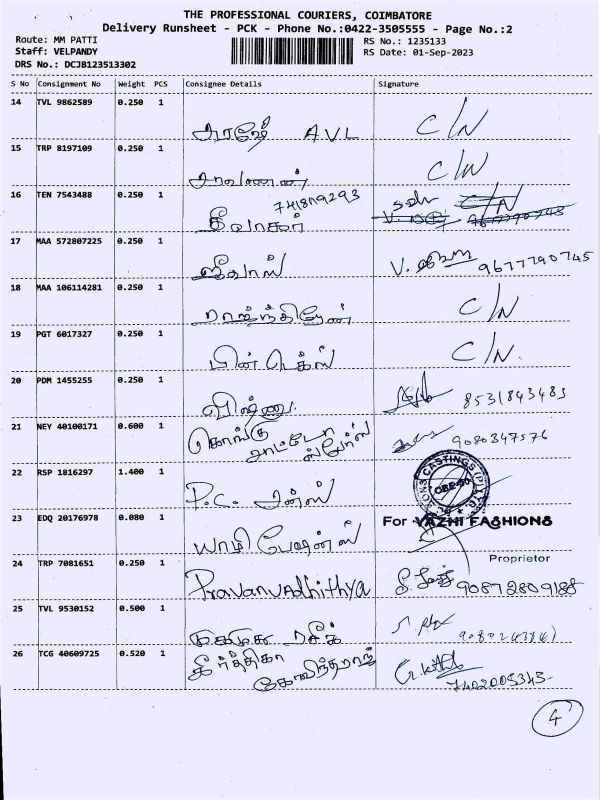 THE PROFESSIONAL COURIERS, COIMBATORE
Delivery Runsheet - PCK - Phone No.:0422-3505555 - Page No.:2
Route: MM PATTI
Staff: VELPANDY
DRS No.: DCJB123513302
RS No.: 1235133
RS Date: 01-Sep-2023
S No Consignment No Weight PCS Consignee Details Signature
14 TVL 9862589 0.250 1
AVL C/N
15 TRP 8197109 0.250 1
சரவணன் C/N
16 TEN 7543488 0.250 1
திவாகர் C/N
17 MAA 572807225 0.250 1
V. 9677790745
18 MAA 106114281 0.250 1
ராஜேந்திரன் C/N
19 PGT 6017327 0.250 1
பின் டெக்ஸ் C/N.
20 PDM 1455255 0.250 1
விஷ்ணு 8531843483
21 NEY 40100171 0.600 1
கொங்கு ஆட்டோ 9080347576
ஸ்பேர்ஸ்
22 RSP 1816297 1.400 1
P.C. சன்ஸ்
23 EDQ 20176978 0.080 1
யாழி பேஷன்ஸ்
For YAZHI FASHIONS
Proprietor
24 TRP 7081651 0.250 1
PravanvAdhithya 90872809188
25 TVL 9530152 0.500 1
26 TCG 40609725 0.520 1
கீர்த்திகா
கோவிந்தராஜ் 7402005343
4